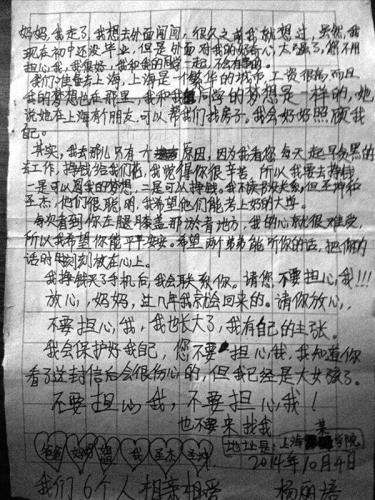 妈妈,我走了,我想去外面闯闯,很久之前我就想过,虽然,我
现在初中还没毕业,但是外面对我的好奇心太强了,您不用
担心我,我很好,我和我的同学一起,不会有事的。
我们准备去上海,上海是一个繁华的城市,工资很高,而且
我的梦想也在那里,我和我同学的梦想是一样的,她
说她在上海有个朋友,可以帮我们找房子。我会好好照顾我
自己。
其实,我去那儿只有个原因,因为我看您每天起早贪黑的
去工作,挣钱给我们花,我觉得你很辛苦,所以我要去挣钱,
一是可以圆我的梦想,二是可以挣钱。我不读书没关系,但
圣杰,他们很聪明,我希望他们能考上好的大学。
每次看到你左腿膝盖那淤青地方,我的心就很难受,
所以我希望你能平平安安。希望两个弟弟能听你的话,把你的
话时时刻刻放在心上。
我挣钱买了手机后,我会联系你。请您不要担心我!!!
放心,妈妈,过几年我就会回来的。请你放心,
不要担心我,我也长大了,我有自己的主张。
我会保护好我自己,您不要担心我,我知道你
看了这封信后会很伤心的,但我已经是大女孩了。
不要担心我,不要担心我!
也不要来找我
地址是:上海某学院
爸爸 妈妈 我 圣杰
2014年10月4日
我们6个人相亲相爱 杨丽